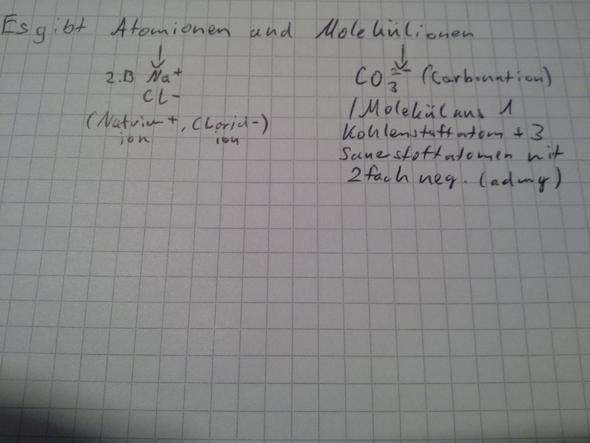 Es gibt Atomionen und Molekülionen
z.B Na+
Cl-
(Natrium+, Chlorid-)
ion ion
CO3 2- (Carbonation)
1 Molekül aus 1
Kohlenstoffatom + 3
Sauerstoffatomen mit
2fach neg. Ladung)